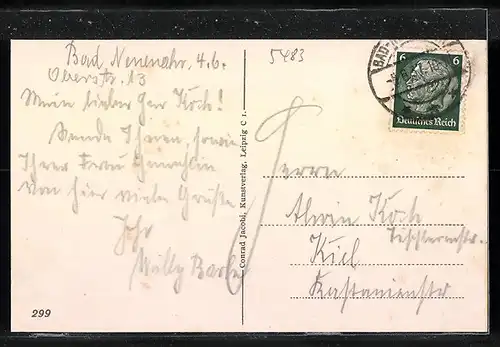 Bad Neuenahr, 4.6.
Oberstr. 13
Mein lieber Herr Koch!
Sende Ihnen, sowie
Ihrer Frau Gemahlin
von hier viele Grüße
Ihr
Willy
5483
BAD-N
6 6
Deutsches Reich
Herrn
Alwin Koch
Tischlermstr.
Kiel
Kastanienstr
Conrad Jacobi, Kunstverlag, Leipzig C 1.
299